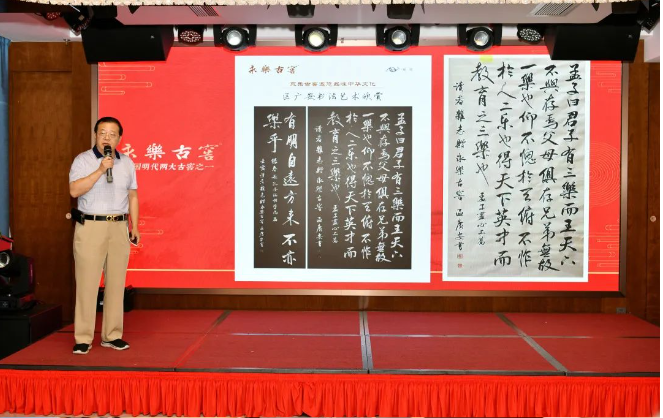 永樂古窖
国明代四大古窖之一
永樂古窖
区广安书法艺术欣赏
孟子曰君子有三樂而王天下
不與存焉父母俱存兄弟無故
一樂也仰不愧於天俯不怍
於人二樂也得天下英才而
教育之三樂也 孟子盡心上篇
有朋自遠方来不亦
樂乎
孟子曰君子有三樂而王天下
不與存焉父母俱存兄弟無故
一樂也仰不愧於天俯不怍
於人二樂也得天下英才而
教育之三樂也 孟子盡心上篇